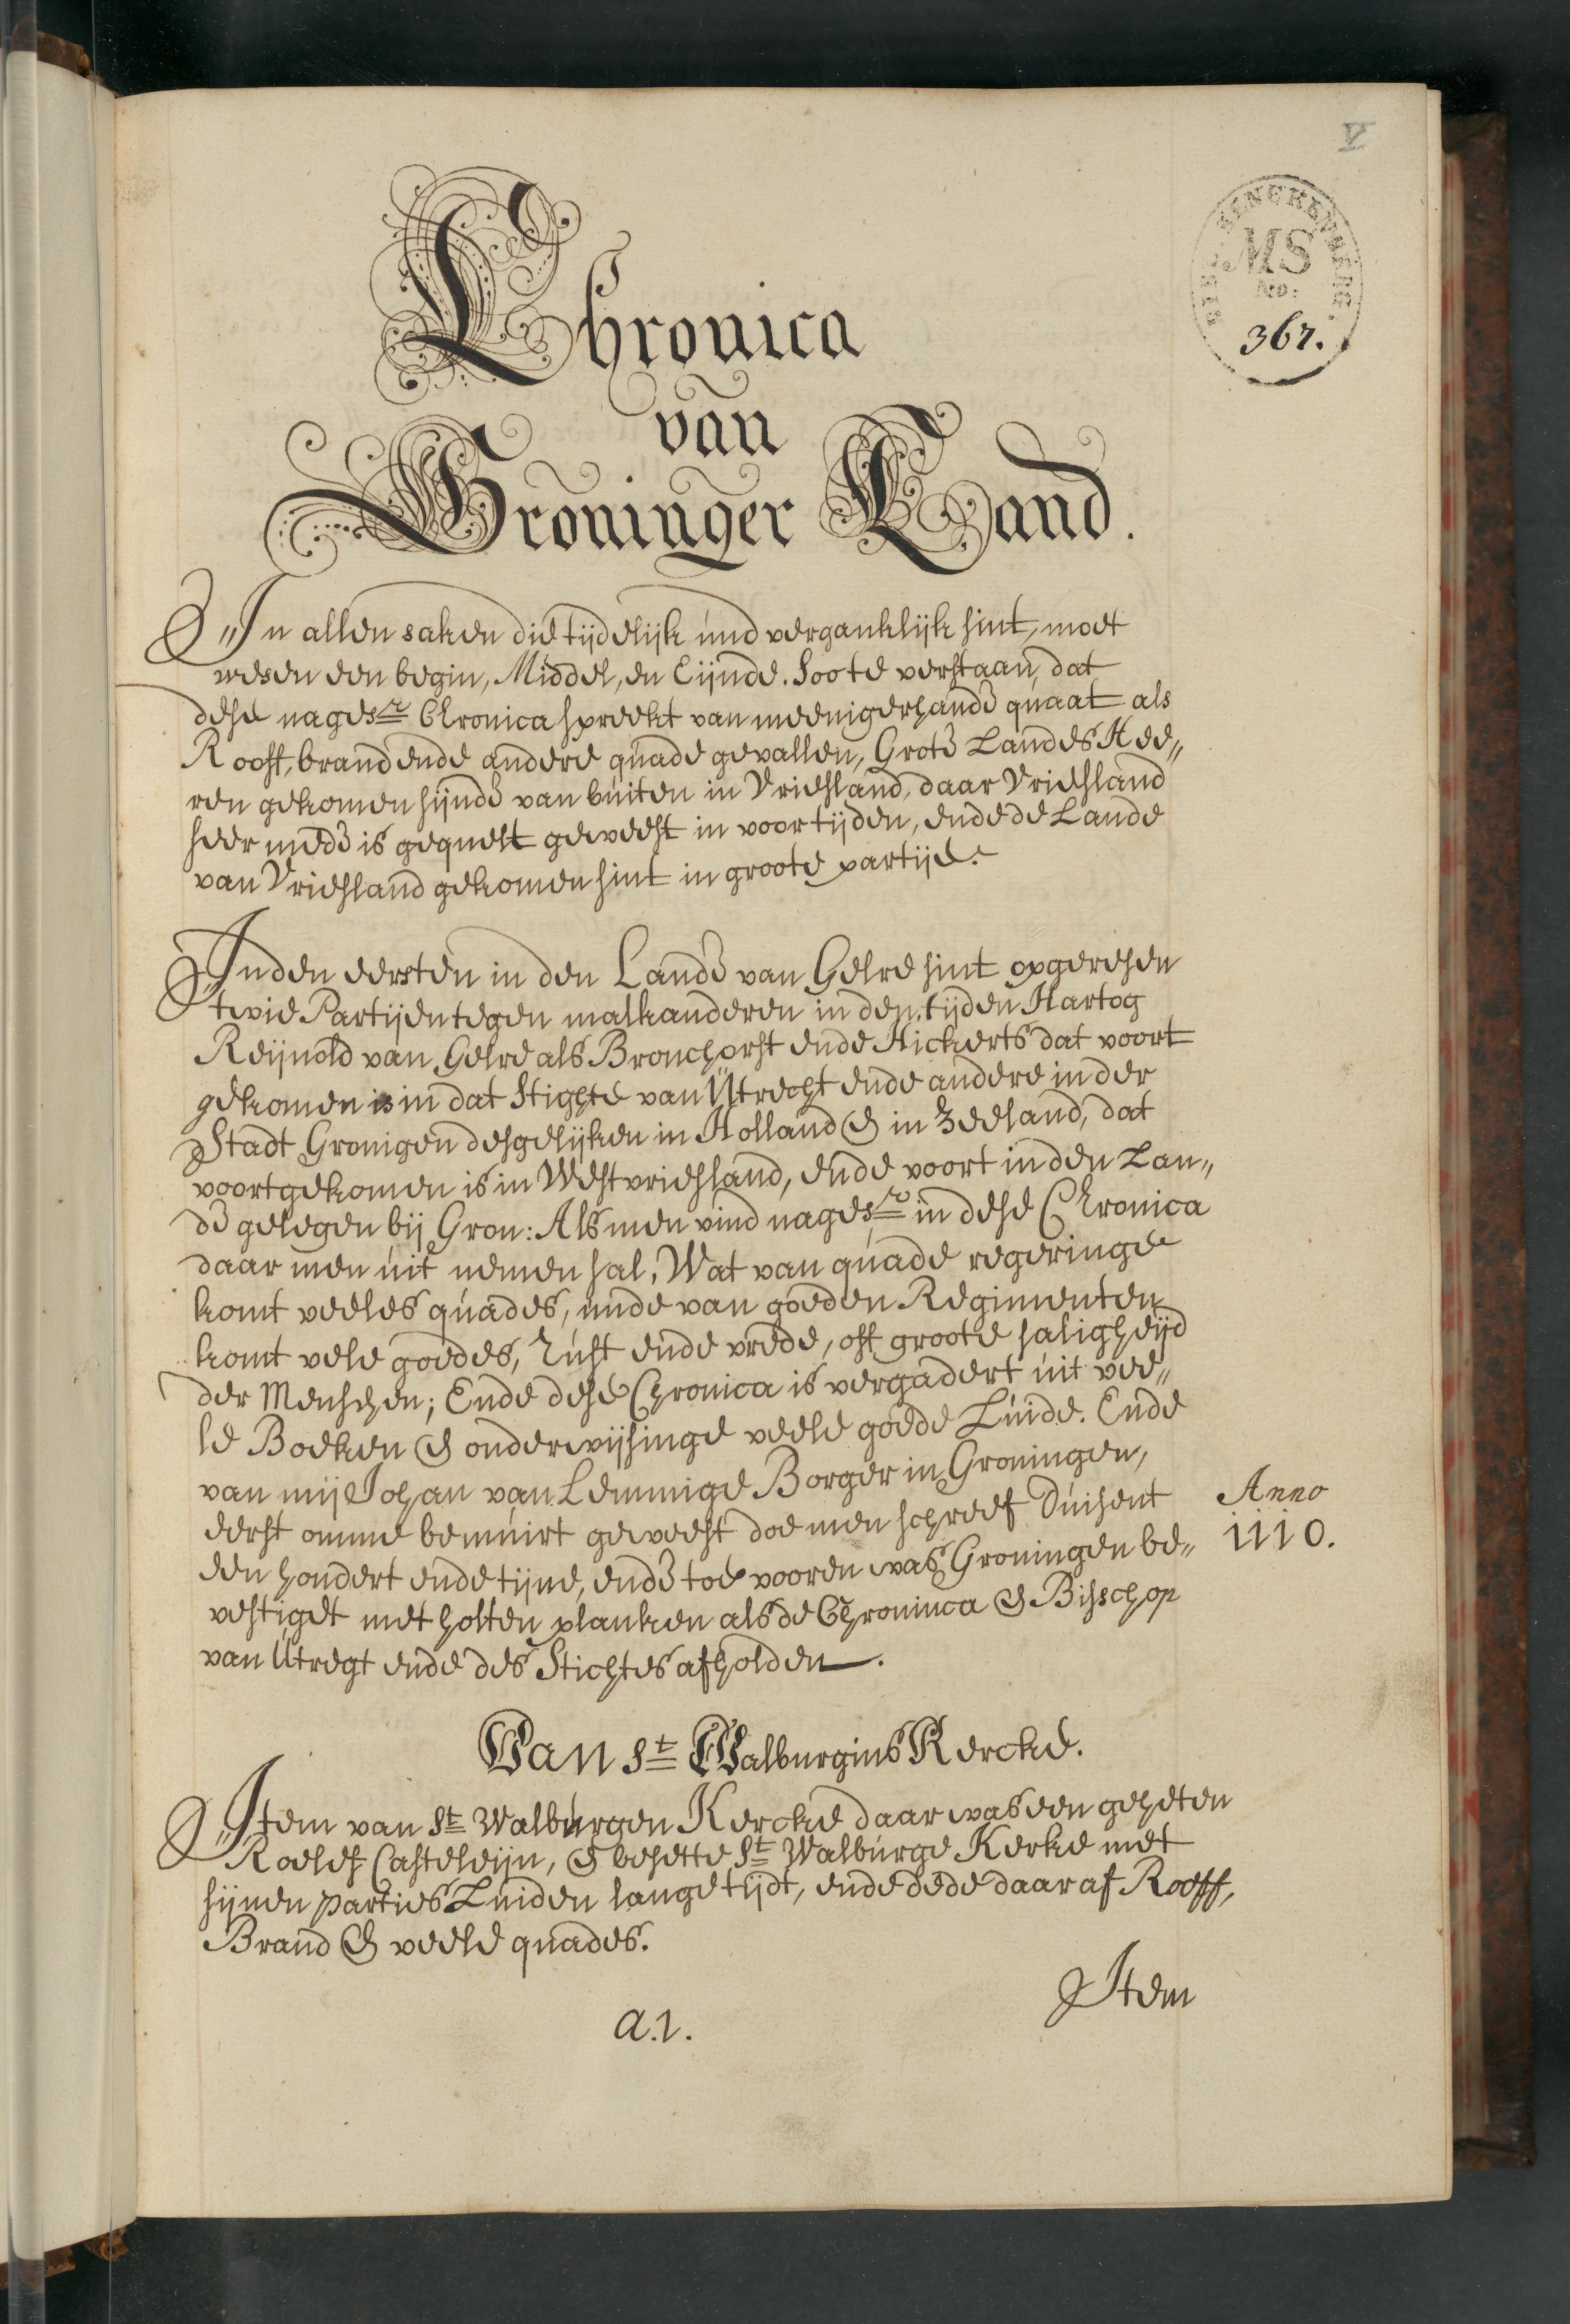 V
BIBL. SENCKENBERG.
MS
No:
367.
Chronica
van
Groninger Land.
In allen saken die tijdelijk und verganklijk sint, moet
wesen een begin, Middel, en Eijnde. Soo te verstaan, dat
dese nagesr Chronica spreekt van meenigerhande quaat als
Rooff, brand ende andere quade gevallen, Grote Landes Hee„
ren gekomen sijnde van buiten in Vriesland, daar Vriesland
seer mede is gequelt geweest in voortijden, ende de Lande
van Vriesland gekomen sint in groote partije.
Inden eersten in den Lande van Gelre sint opgeresen
twie Partijen tegen malkanderen in den tijden Hartog
Reijnold van Gelre als Bronchorst ende Hickerts dat voort
gekomen is in dat Stichte van Utrecht ende andere in der
Stadt Gronigen desgelijken in Holland & in Zeeland, dat
voortgekomen is in Westvriesland, ende voort in den Lan„
de gelegen bij Gron: Als men vind nagesr in dese Chronica
daar men uit nemen sal, Wat van quade regeringe
komt veeles quades, unde van goeden Regimenten
komt vele goedes, Rust ende vrede, off groote saligheijd
der Menschen; Ende dese Chronica is vergadert uit vee„
le Boeken & onderwijsinge veele goede Luide. Ende
van mij Johan van Lemmige Borger in Groningen,
eerst omme bemuirt geweest doe men schreef Duisent
Anno
1110.
een hondert ende tijne, ende toe vooren was Groningen be„
vestiget met holten planken als de Chroninca & Bisschop
van Utregt ende des Stichtes afholden.
Van St Walburgius Kercke.
Item van St Walburgen Kercke daar was een geheten
Roelef Casteleijn, & besette St Walburge Kerke met
sijnen Parties Luiden lange tijdt, ende dede daar af Rooff,
Brand & veele quades.
Item
a.1.